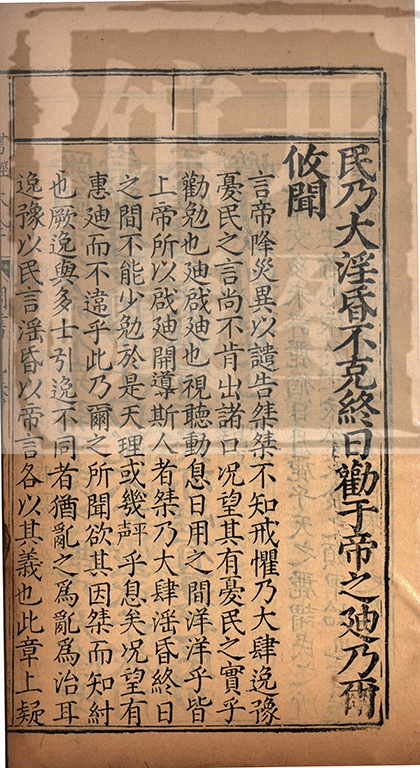 民乃大淫昏不克終日勸于帝之廸乃爾
攸聞
言帝降災異以譴告桀桀不知戒懼乃大肆逸豫
憂民之言尚不肯出諸口况望其有憂民之實乎
勸勉也廸啟廸也視聽動息日用之間洋洋乎皆
上帝所以啟廸開導斯人者桀乃大肆淫昏終日
之間不能少勉於是天理或幾乎息矣况望有
惠廸而不違乎此乃爾之所聞欲其因桀而知紂
也厥逸與多士引逸不同者猶亂之爲亂爲治耳
逸豫以民言淫昏以帝言各以其義也此章上疑